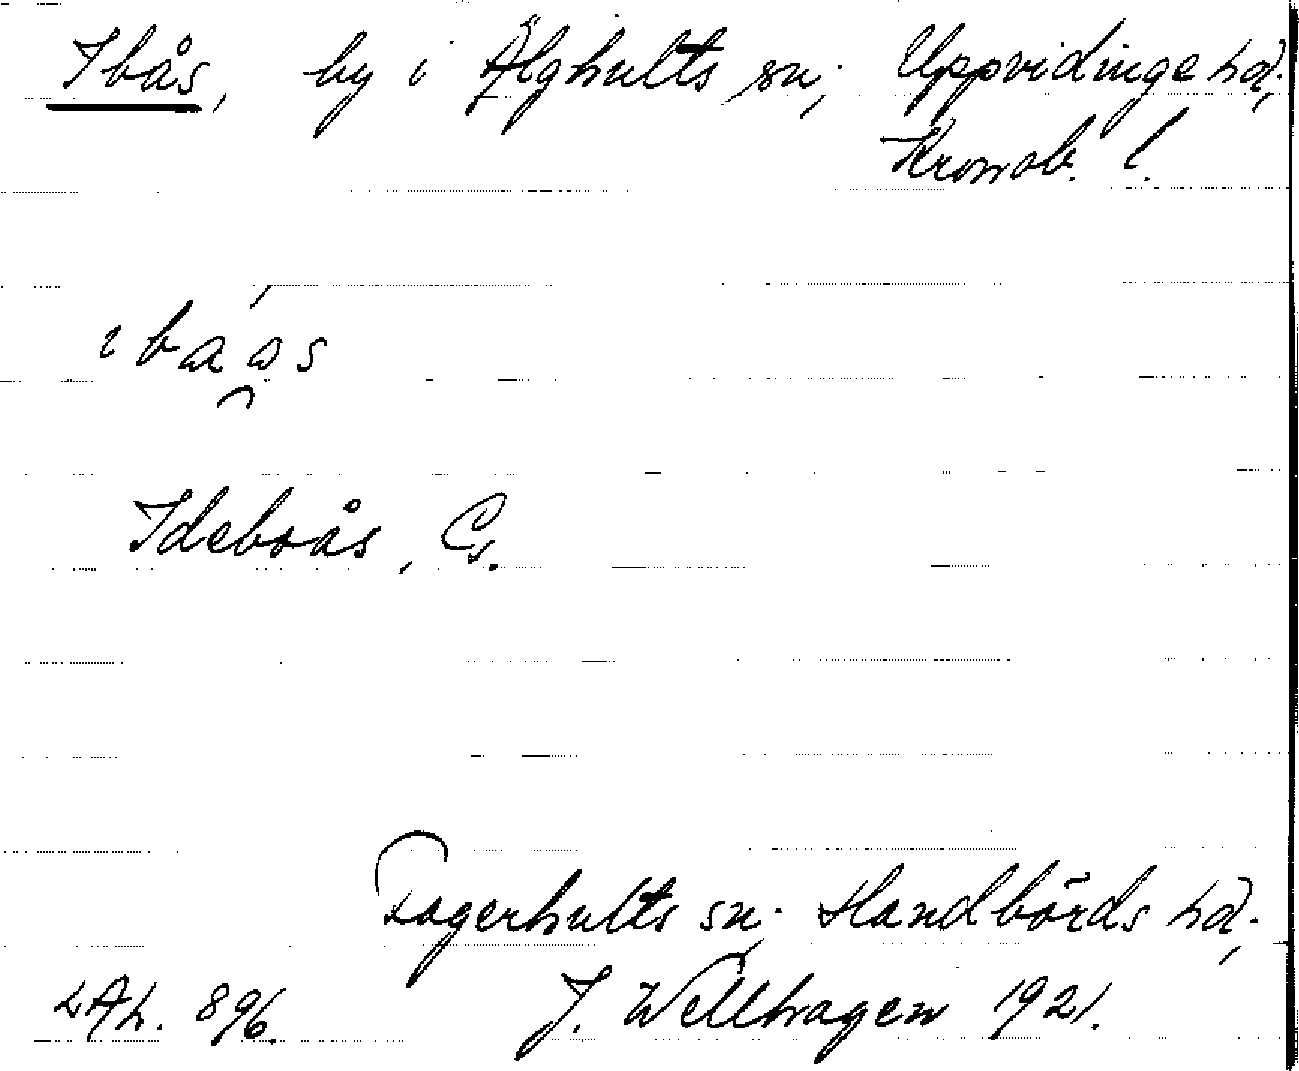 Ibås, by i Älghults sn, Uppvidinge hd,
Kronob. l.
ibaås
Ideboås, Cs.
Fagerhults sn. Handbörds hd,
LAL. 896. J. Wellhagen 1921.